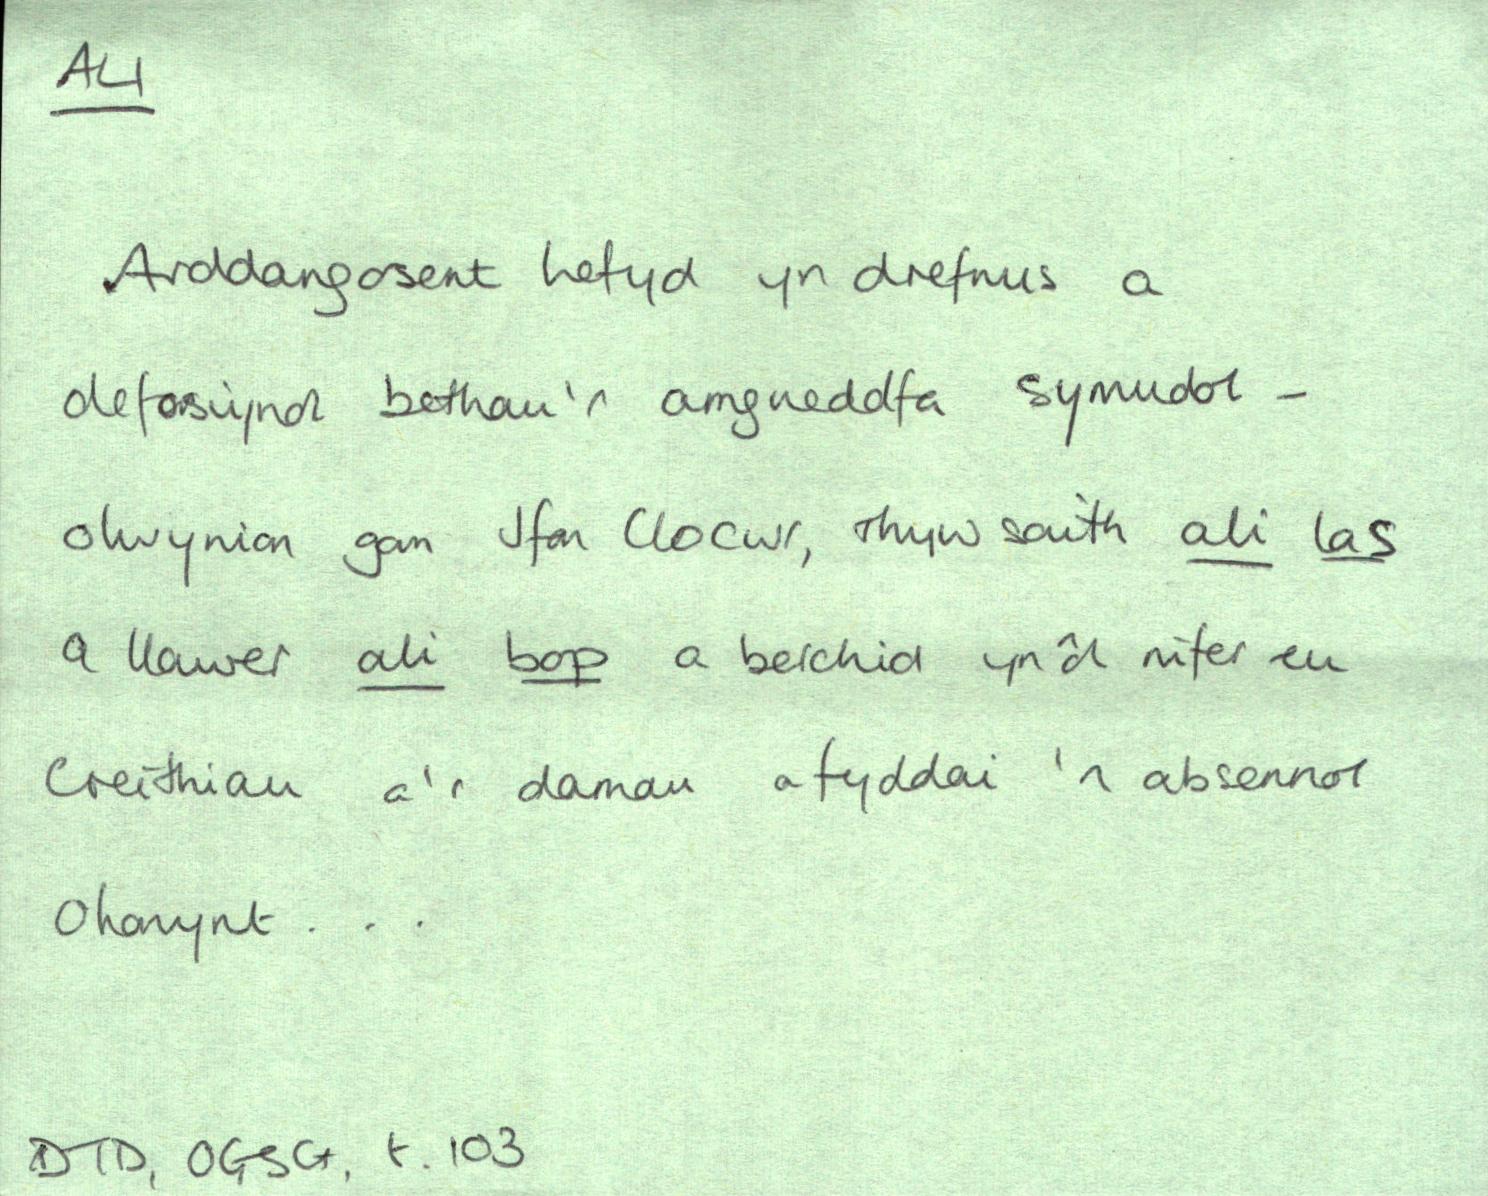 ALI
Arddangosent hefyd yn drefnus a
defosiynol bethau'r amgueddfa symudol -
olwynion gan Ifan Clocwr, rhyw saith ali las
a llawer ali bop a berchid yn ôl nifer eu
creithiau a'r darnau a fyddai 'n absennol
ohonynt . . .
DTD, OGSG, t. 103